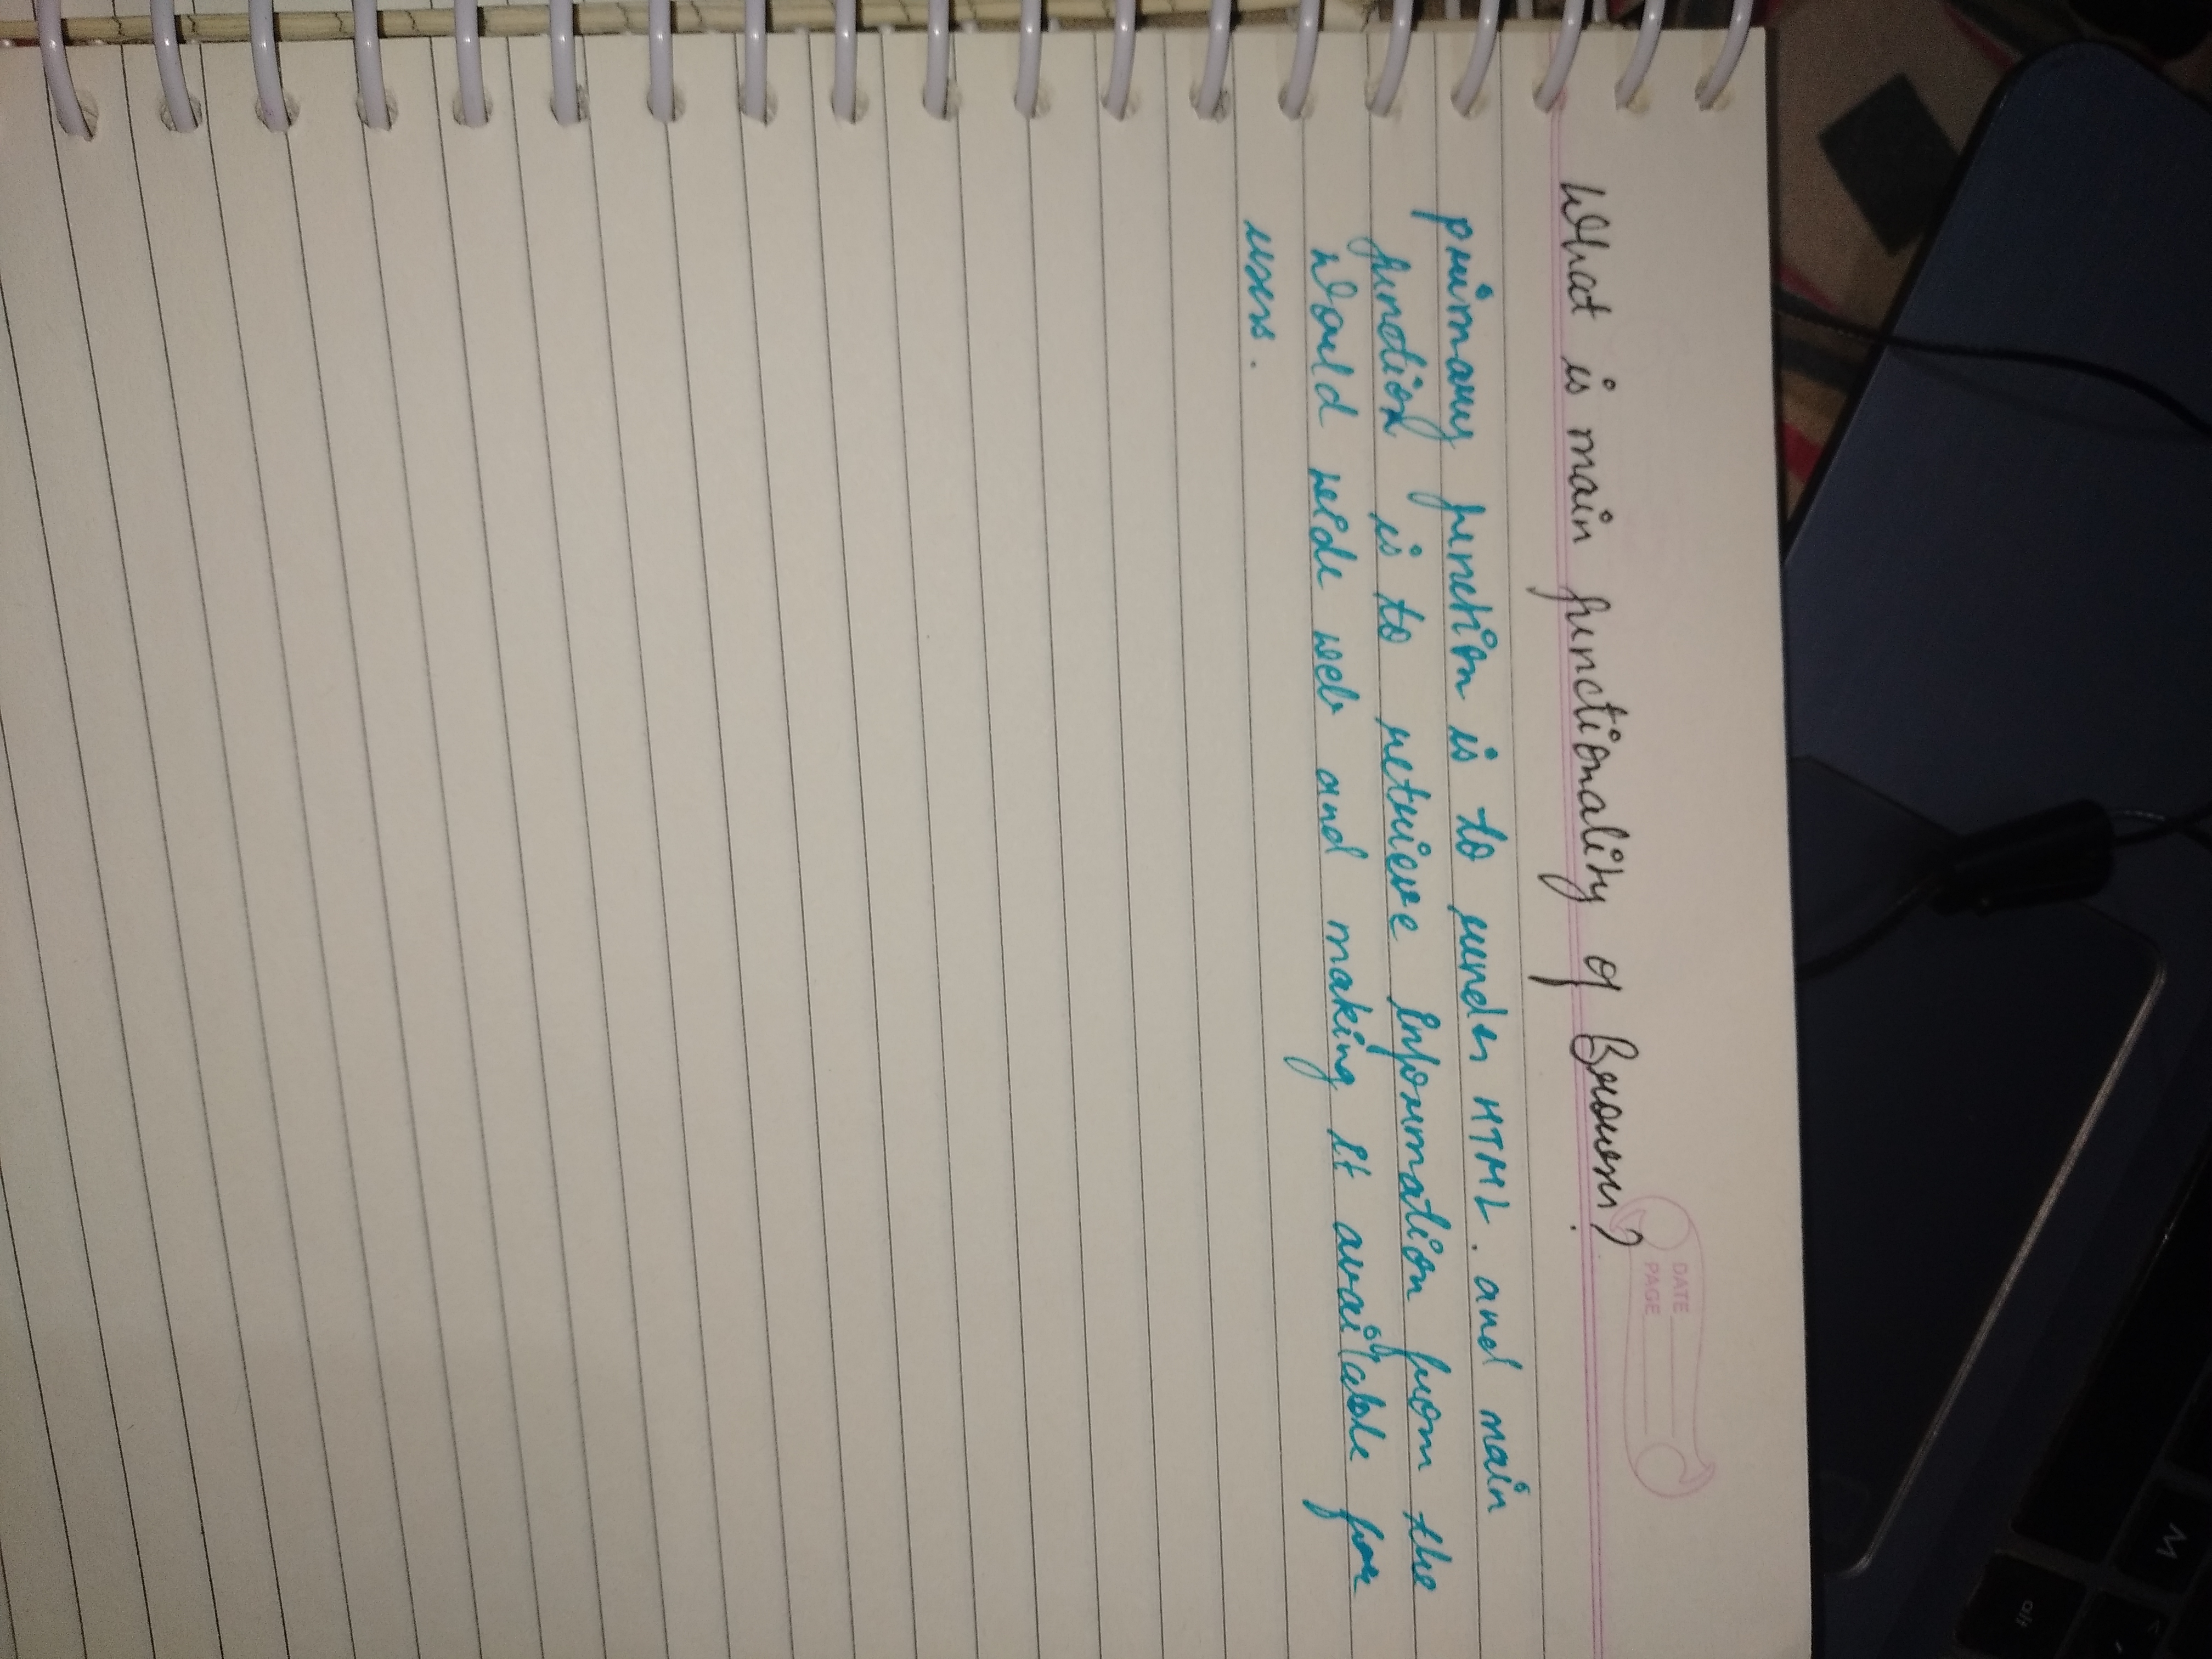 What is main functionality of Browser?
DATE
PAGE
primary function is to render HTML. and main
function is to retrieve information from the
World wide web and making it available for
users.
M
alt